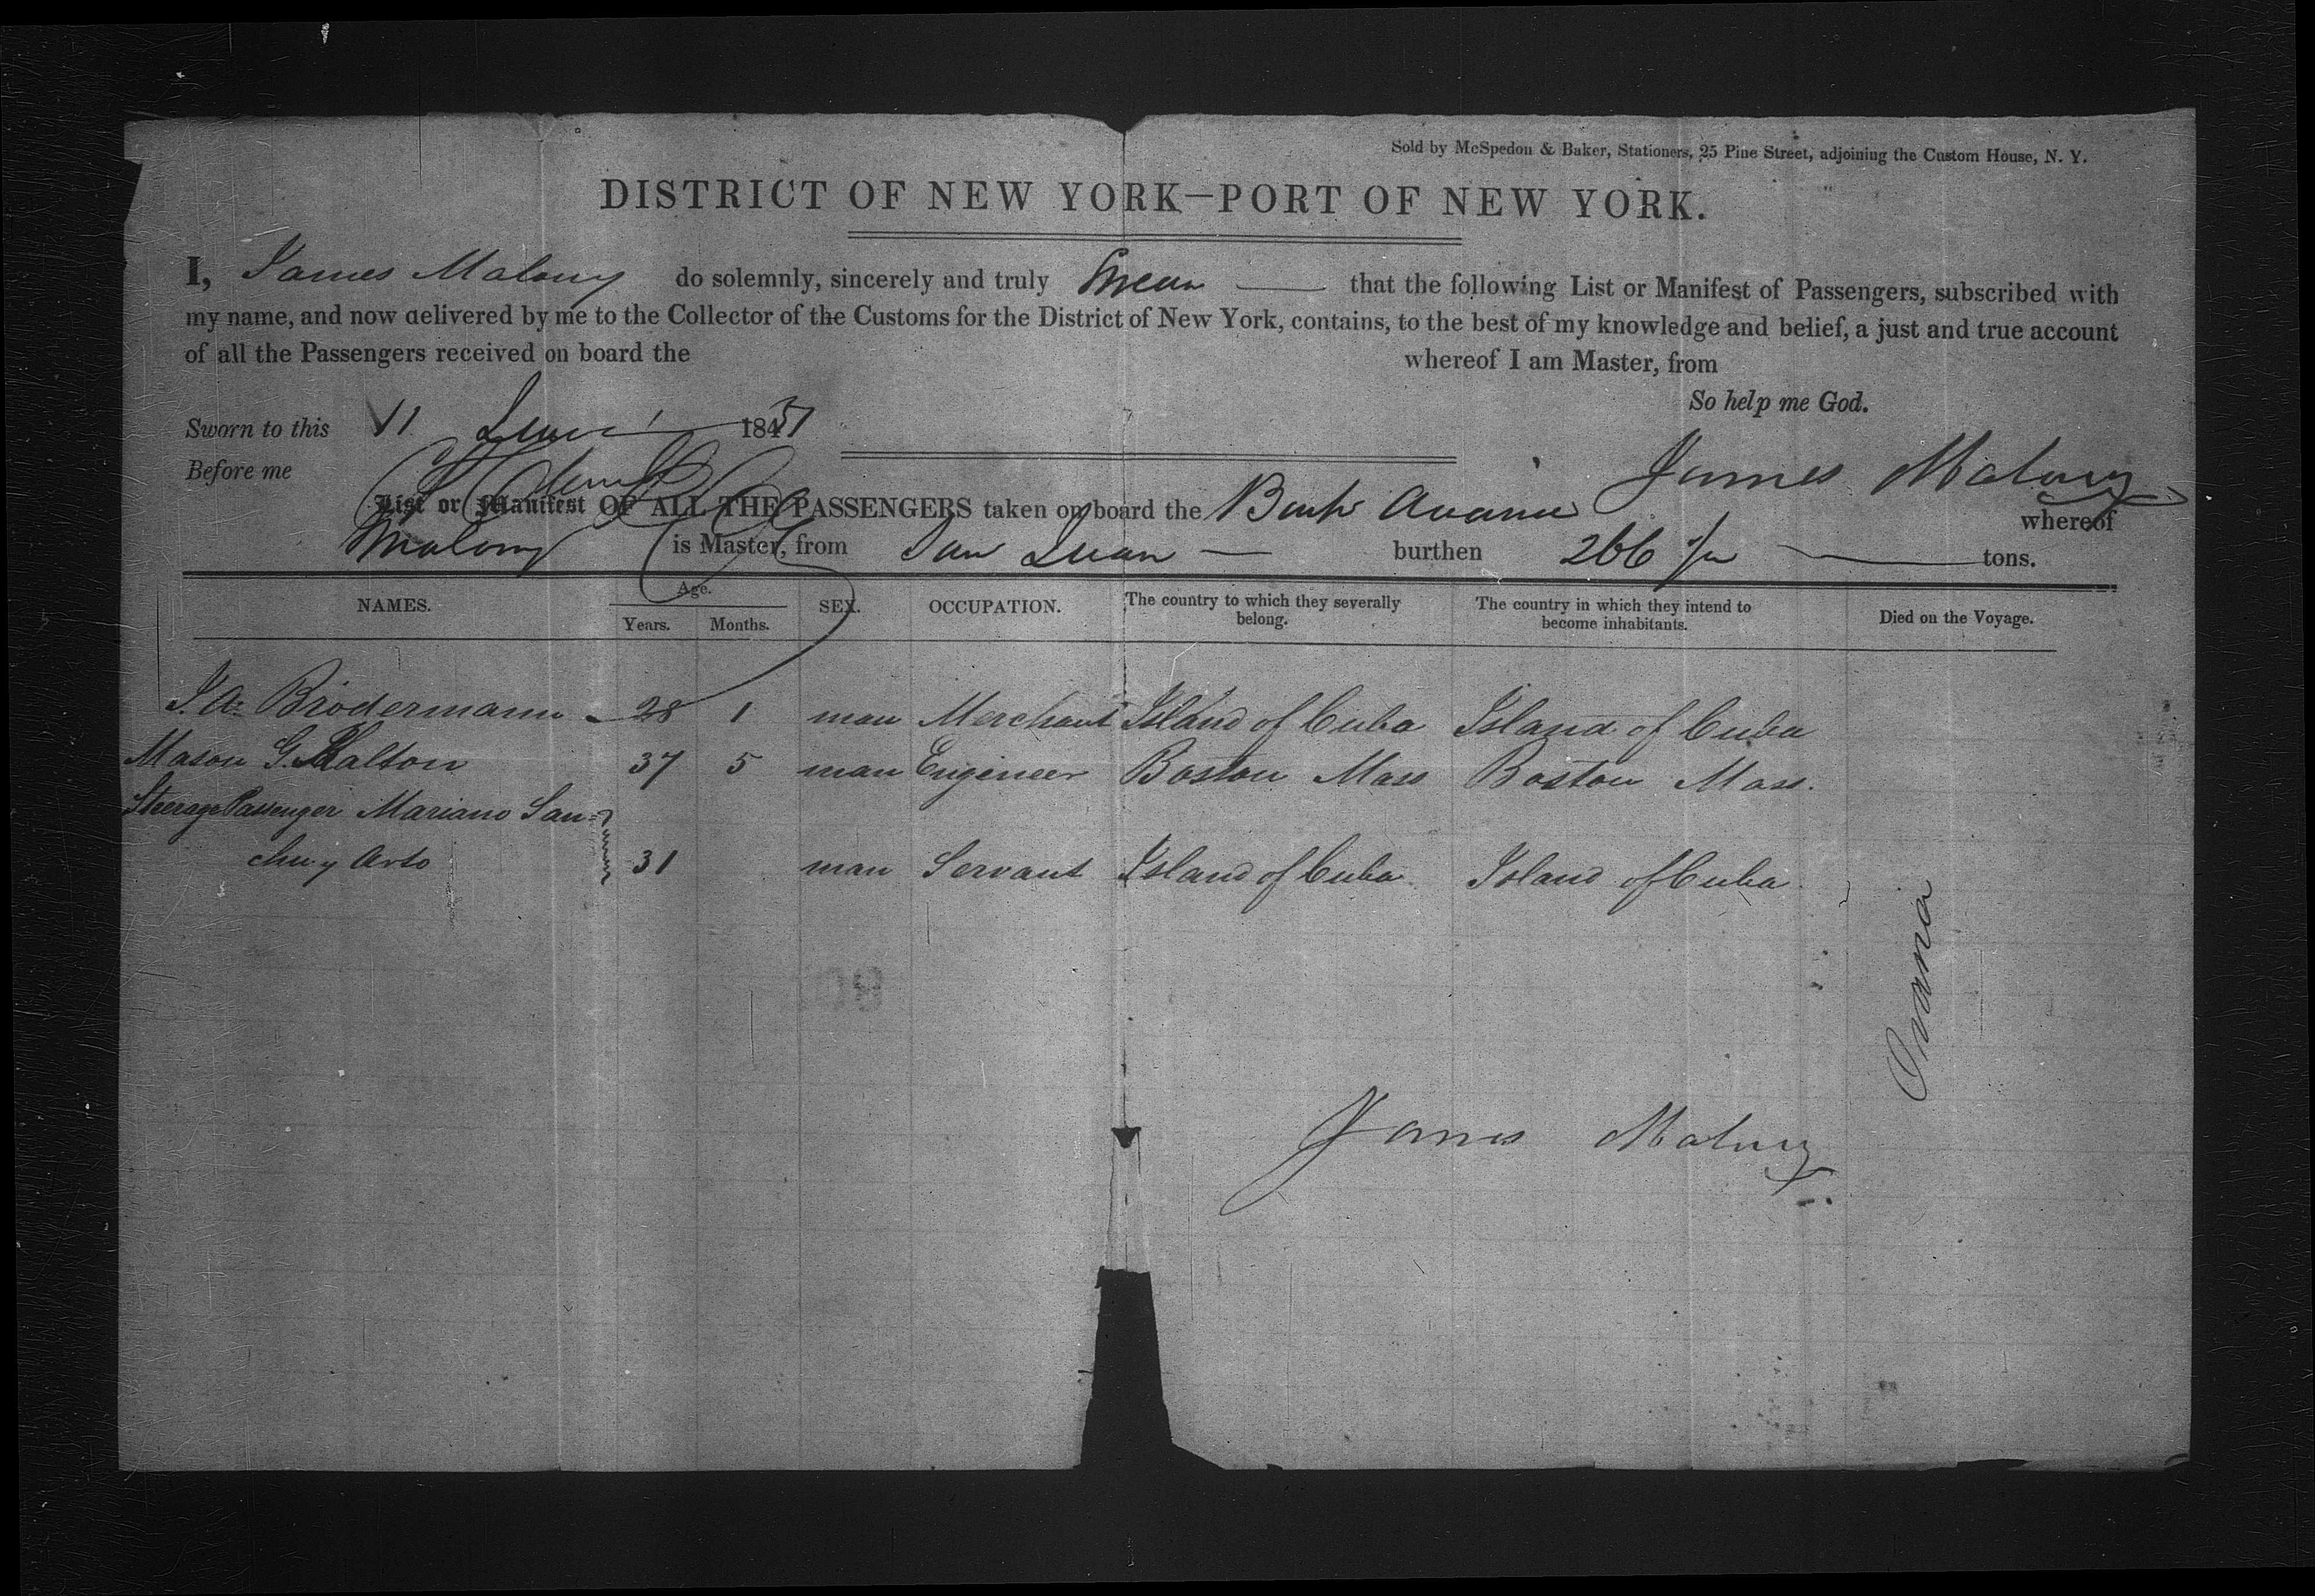 Sold by McSpedon & Baker, Stationers, 25 Pine Street, adjoining the Custom House, N. Y.
DISTRICT OF NEW YORK—PORT OF NEW YORK.
I, James Malony do solemnly, sincerely and truly Swear that the following List or Manifest of Passengers, subscribed with
my name, and now delivered by me to the Collector of the Customs for the District of New York, contains, to the best of my knowledge and belief, a just and true account
of all the Passengers received on board the whereof I am Master, from
So help me God.
Sworn to this June 1851
Before me
James Malony
List or Manifest OF ALL THE PASSENGERS taken on board the Bark whereof
Malony is Master, from San Juan burthen 266 tons.
NAMES. Age. SEX. OCCUPATION. The country to which they severally belong. The country in which they intend to become inhabitants. Died on the Voyage.
Years. Months.
J. A. Brodermann 28 1 man Merchant Island of Cuba Island of Cuba
Mason G. 37 5 man Engineer Boston Mass Boston Mass.
Steerage Passenger Mariano San-
chez y Arto 31 man Servant Island of Cuba Island of Cuba
James Malony